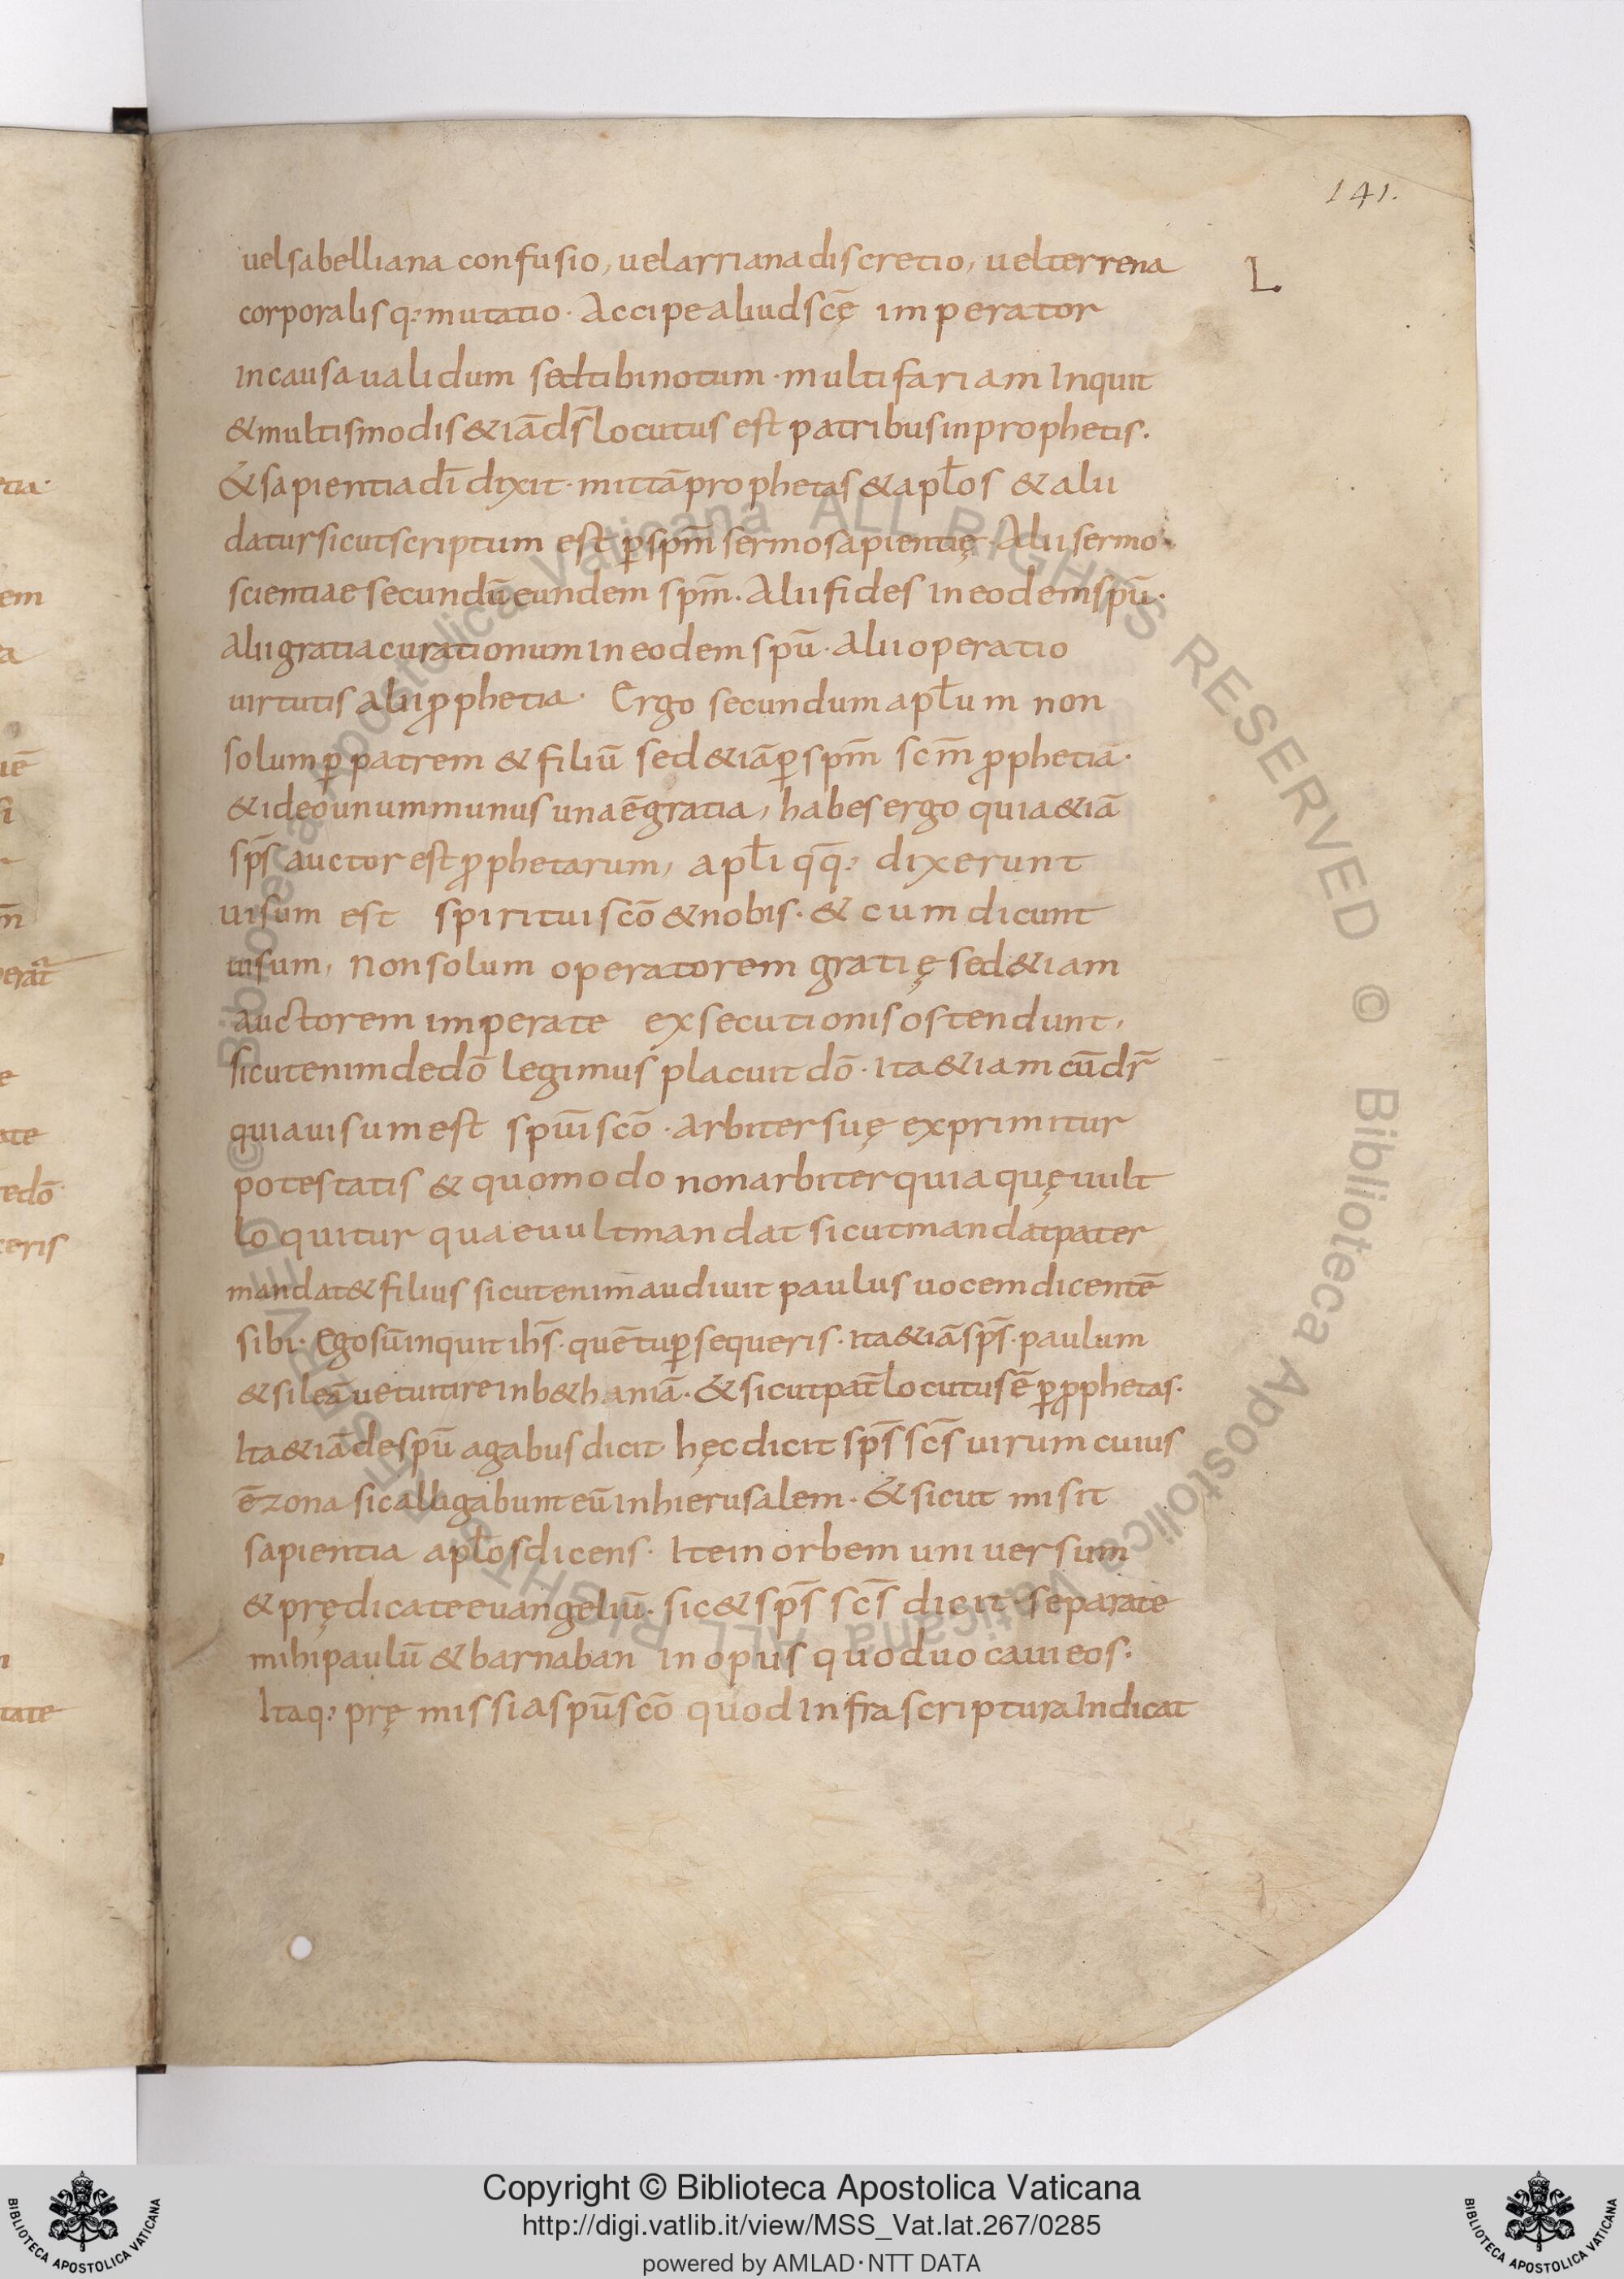 141.
L.
uel sabelliana confusio, uel arriana discretio, uel terrena
corporalisq; mutatio · Accipe aliud scē imperator
In causa ualidum sed tibi notum · multifariam Inquit
& multis modis &iā ds̄ locutus est patribus in prophetis.
& sapientia dī dixit · mittā prophetas & apłos & alii
datur sicut scriptum est ꝑ spm̄ sermo sapientię · Alii sermo
scientiae secundū eundem spm̄. Alii fides In eodem spū·
Alii gratia curationum In eodem spū · alii operatio
uirtutis alii ꝓphetia · Ergo secundum apłum non
solum ꝑ patrem & filiū sed &iā ꝑ spm̄ scm̄ ꝓphetiā·
& ideo unum munus una ē gratia, habes ergo quia &iā
sps̄ auctor est ꝓphetarum, apłi qq̄; dixerunt
uisum est spiritui scō & nobis · & cum dicunt
uisum, Non solum operatorem gratię sed &iam
Auctorem imperate exsecutionis ostendunt,
sicut enim de dō legimus placuit dō · Ita &iam cū dr̄
quia uisum est spūi scō · Arbiter suę exprimitur
potestatis & quomodo non arbiter quia quę uult
loquitur quae uult mandat sicut mandat pater
mandat & filius sicut enim audiuit paulus uocem dicentē
sibi · Ego sū inquit ihs̄ · quē tu ꝑsequeris · Ita &iā sps̄ · paulum
& sileā uetuit ire In b&haniā · & sicut pat̄ locutus ē ꝑ ꝓphetas·
Ita &iā de spū agabus dicit hęc dicit sps̄ scs̄ uirum cuius
ē zona sic alligabunt eū in hierusalem · & sicut misit
sapientia apłos dicens · Ite in orbem uniuersum
& prędicate euangeliū · sic & sps̄ scs̄ dicit · separate
mihi paulū & barnaban In opus quod uocaui eos·
Itaq; pręmissi a spū scō quod Infra scriptura Indicat
Copyright © Biblioteca Apostolica Vaticana
http://digi.vatlib.it/view/MSS_Vat.lat.267/0285
powered by AMLAD·NTT DATA